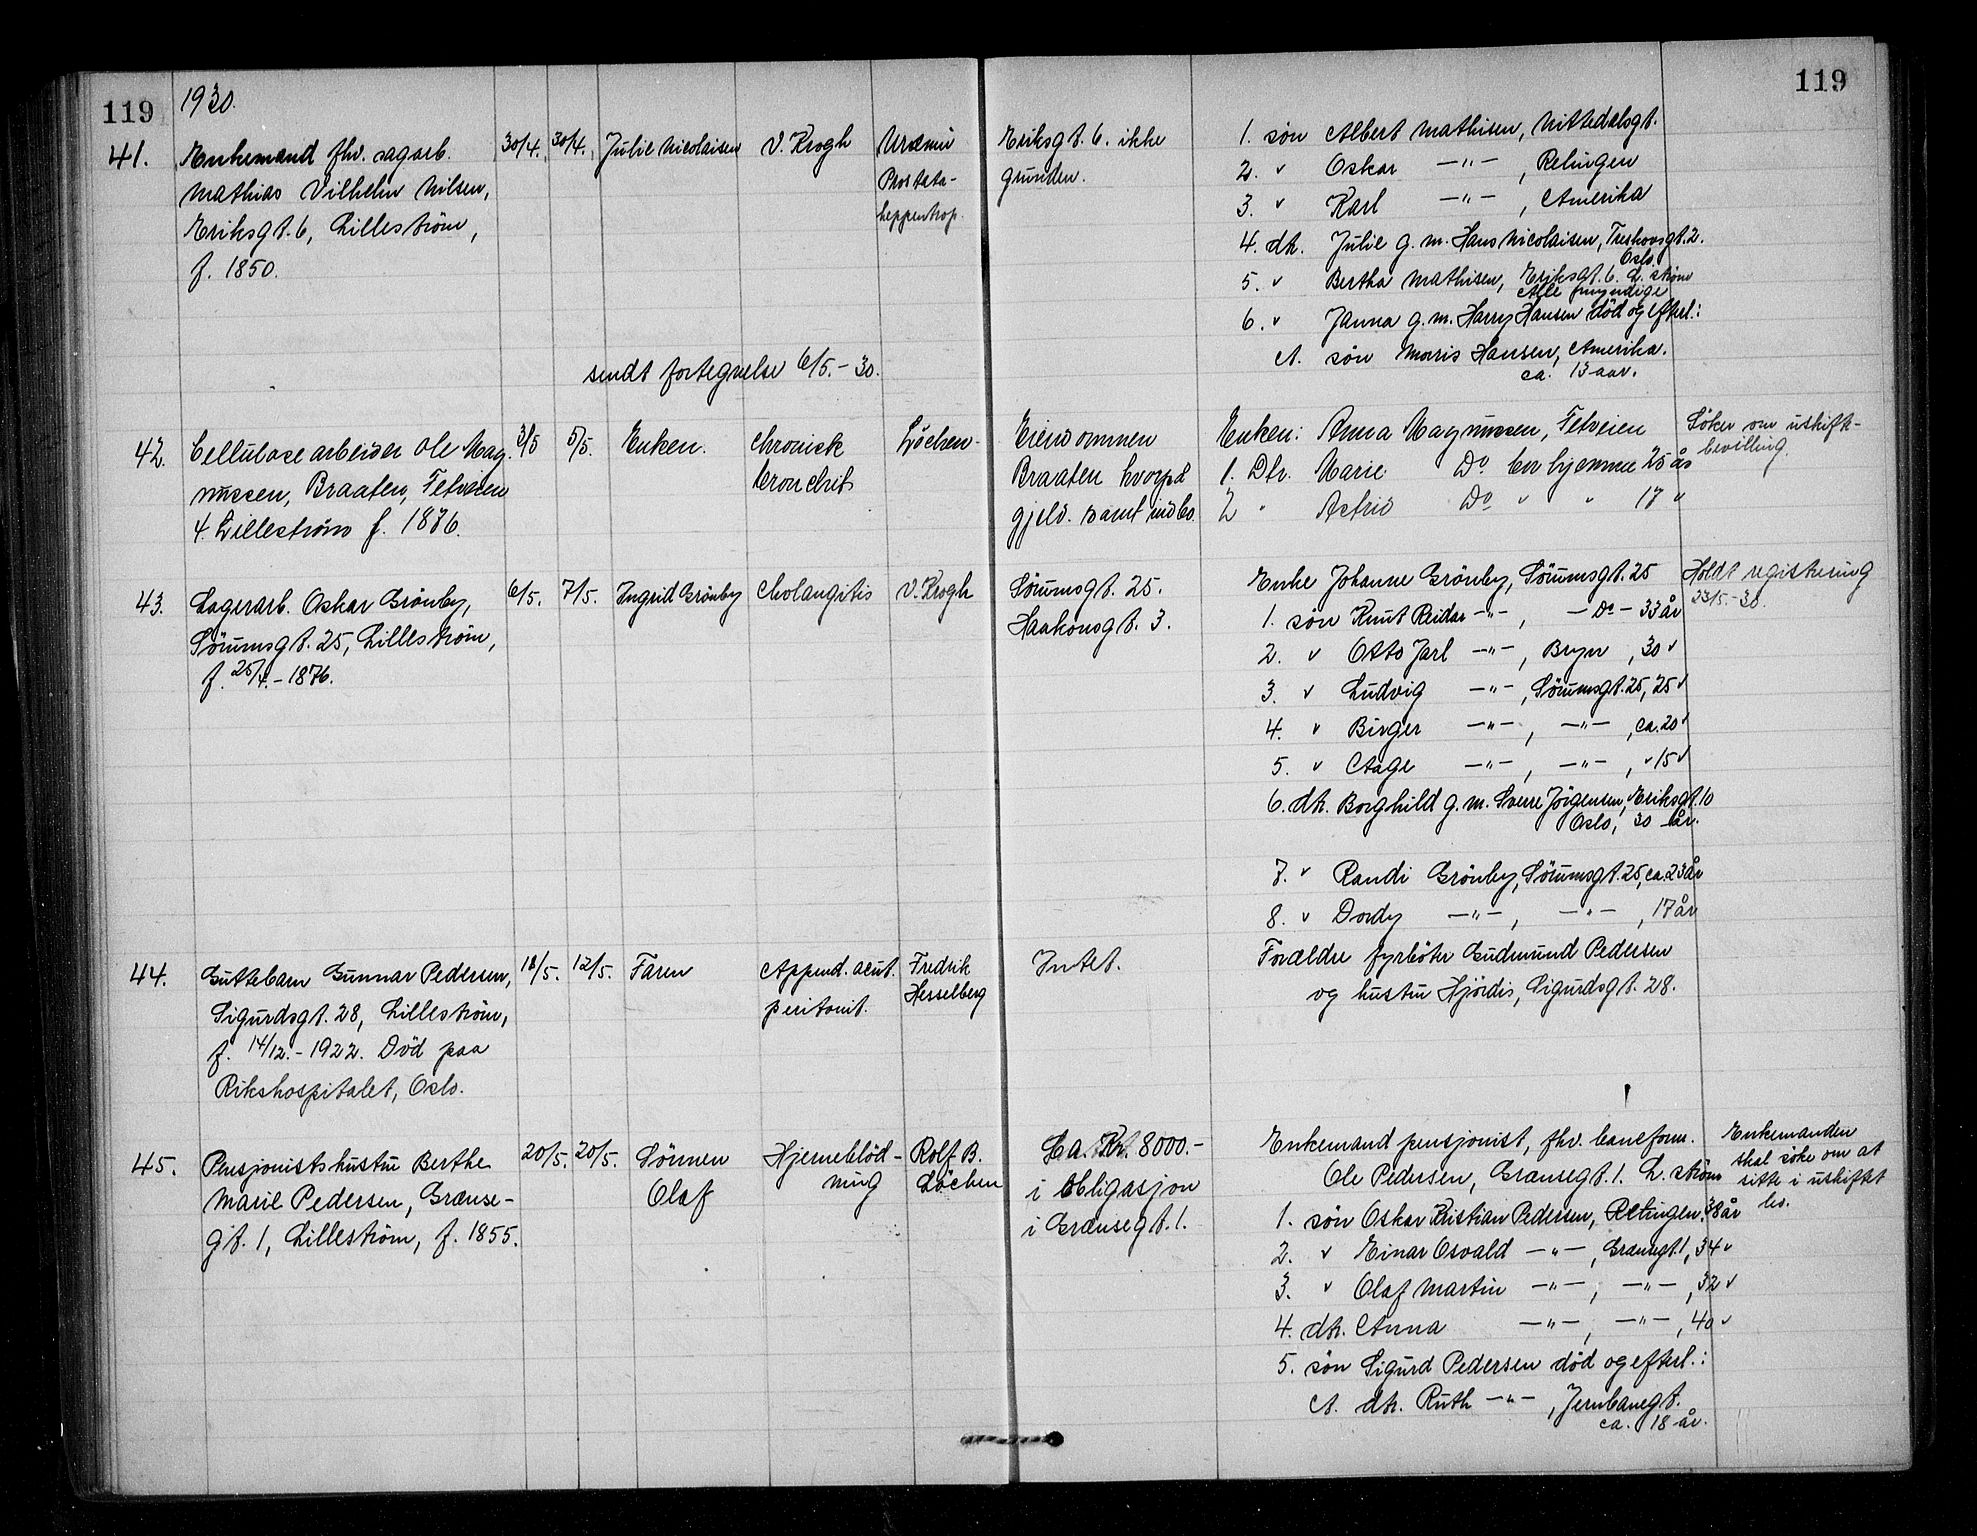 119
1930.
119
41.
Enkemand fhv. sagarb.
Mathias Vilhelm Nilsen,
Eriksgt. 6, Lillestrøm,
f. 1850.
30/4.
30/4.
Julie Nicolaisen
V. Krogh
Uræmi
Prostata-
Eriksgt. 6. ikke
grunden.
1. søn Albert Mathisen, Nittedalsgt.
2. " Oskar —"— , Relingen
3. " Karl —"— , Amerika
4. dt. Julie g. m. Hans Nicolaisen, Treskovsgt. 2.
Oslo
5. " Bertha Mathisen, Eriksgt. 6. L. strøm
Alle myndige
6. " Janna g. m. Harry Hansen død og efterl.:
A. søn Morris Hansen, Amerika.
ca. 13 aar.
sendt fortegnelse 6/5. - 30.
42.
Cellulosearbeider Ole Mag
nussen, Braaten, Fetveien
4. Lillestrøm f. 1876.
3/5
5/5.
Enken.
Chronisk
bronchit
Løchen
Eiendommen
Braaten hvorpå
gjeld. samt indbo.
Enken: Anna Magnussen, Fetveien
1. Dtr. Marie Do bor hjemme 25 år
2 " Astrid Do " " 17 "
Søker om utskift-
bevilling.
43.
Lagerarb. Oskar Grönby,
Sörumsgt. 25, Lillestrøm,
f. 25/4. - 1876.
6/5.
7/5.
Ingrid Grönby
Cholangitis
V. Krogh
Sörumsgt. 25.
Haakonsgt. 3.
Enke Johanne Grönby, Sörumsgt. 25
1. søn Knut Reidar —"— , — Do — 33 år
2. " Otto Jarl —"— , Bryn , 30 "
3. " Ludvig —"— , Sörumsgt. 25, 25 "
4. " Birger —"— , —"— , ca. 20 "
5. " Aage —"— , —"— , " 15 "
6. dt. Borghild g. m. Sverre Jørgensen, Eriksgt. 10
Oslo, 30 år.
7. " Randi Grönby, Sörumsgt. 25, ca. 23 år
8. " Dordy —"— , —"— , 17 år
Holdt registrering
23/5. - 30.
44.
Guttebarn Gunnar Pedersen,
Sigurdsgt. 28, Lillestrøm,
f. 14/12. - 1922. Død paa
Rikshospitalet, Oslo.
12/5.
Faren
Append. acut.
peritonit.
Fredrik
Hesselberg
Intet.
Forældre fyrbøter Gudmund Pedersen
og hustru Hjördis, Sigurdsgt. 28.
45.
Pensjonistshustru Berthe
Marie Pedersen, Grænse-
gt. 1, Lillestrøm, f. 1855.
20/5.
20/5.
Sønnen
Olaf
Hjerneblød-
ning
Rolf B.
Løchen
Ca. Kr. 8000.-
i Obligasjon
i Grænsegt. 1.
Enkemand pensjonist, fhv. baneform.
Ole Pedersen, Grænsegt. 1. L. strøm
1. søn Oskar Kristian Pedersen, Relingen. 38 år
2. " Einar Osvald —"— , Grænsegt. 1, 34 "
3. " Olaf Martin —"— , —"— , 32 "
4. dt. Anna —"— , —"— , 40 "
5. søn Sigurd Pedersen død og efterl.:
A. dt. Ruth —"— , Jernbanegt.
ca. 18 år.
Enkemanden
skal søke om at
sitte i uskiftet
bo.